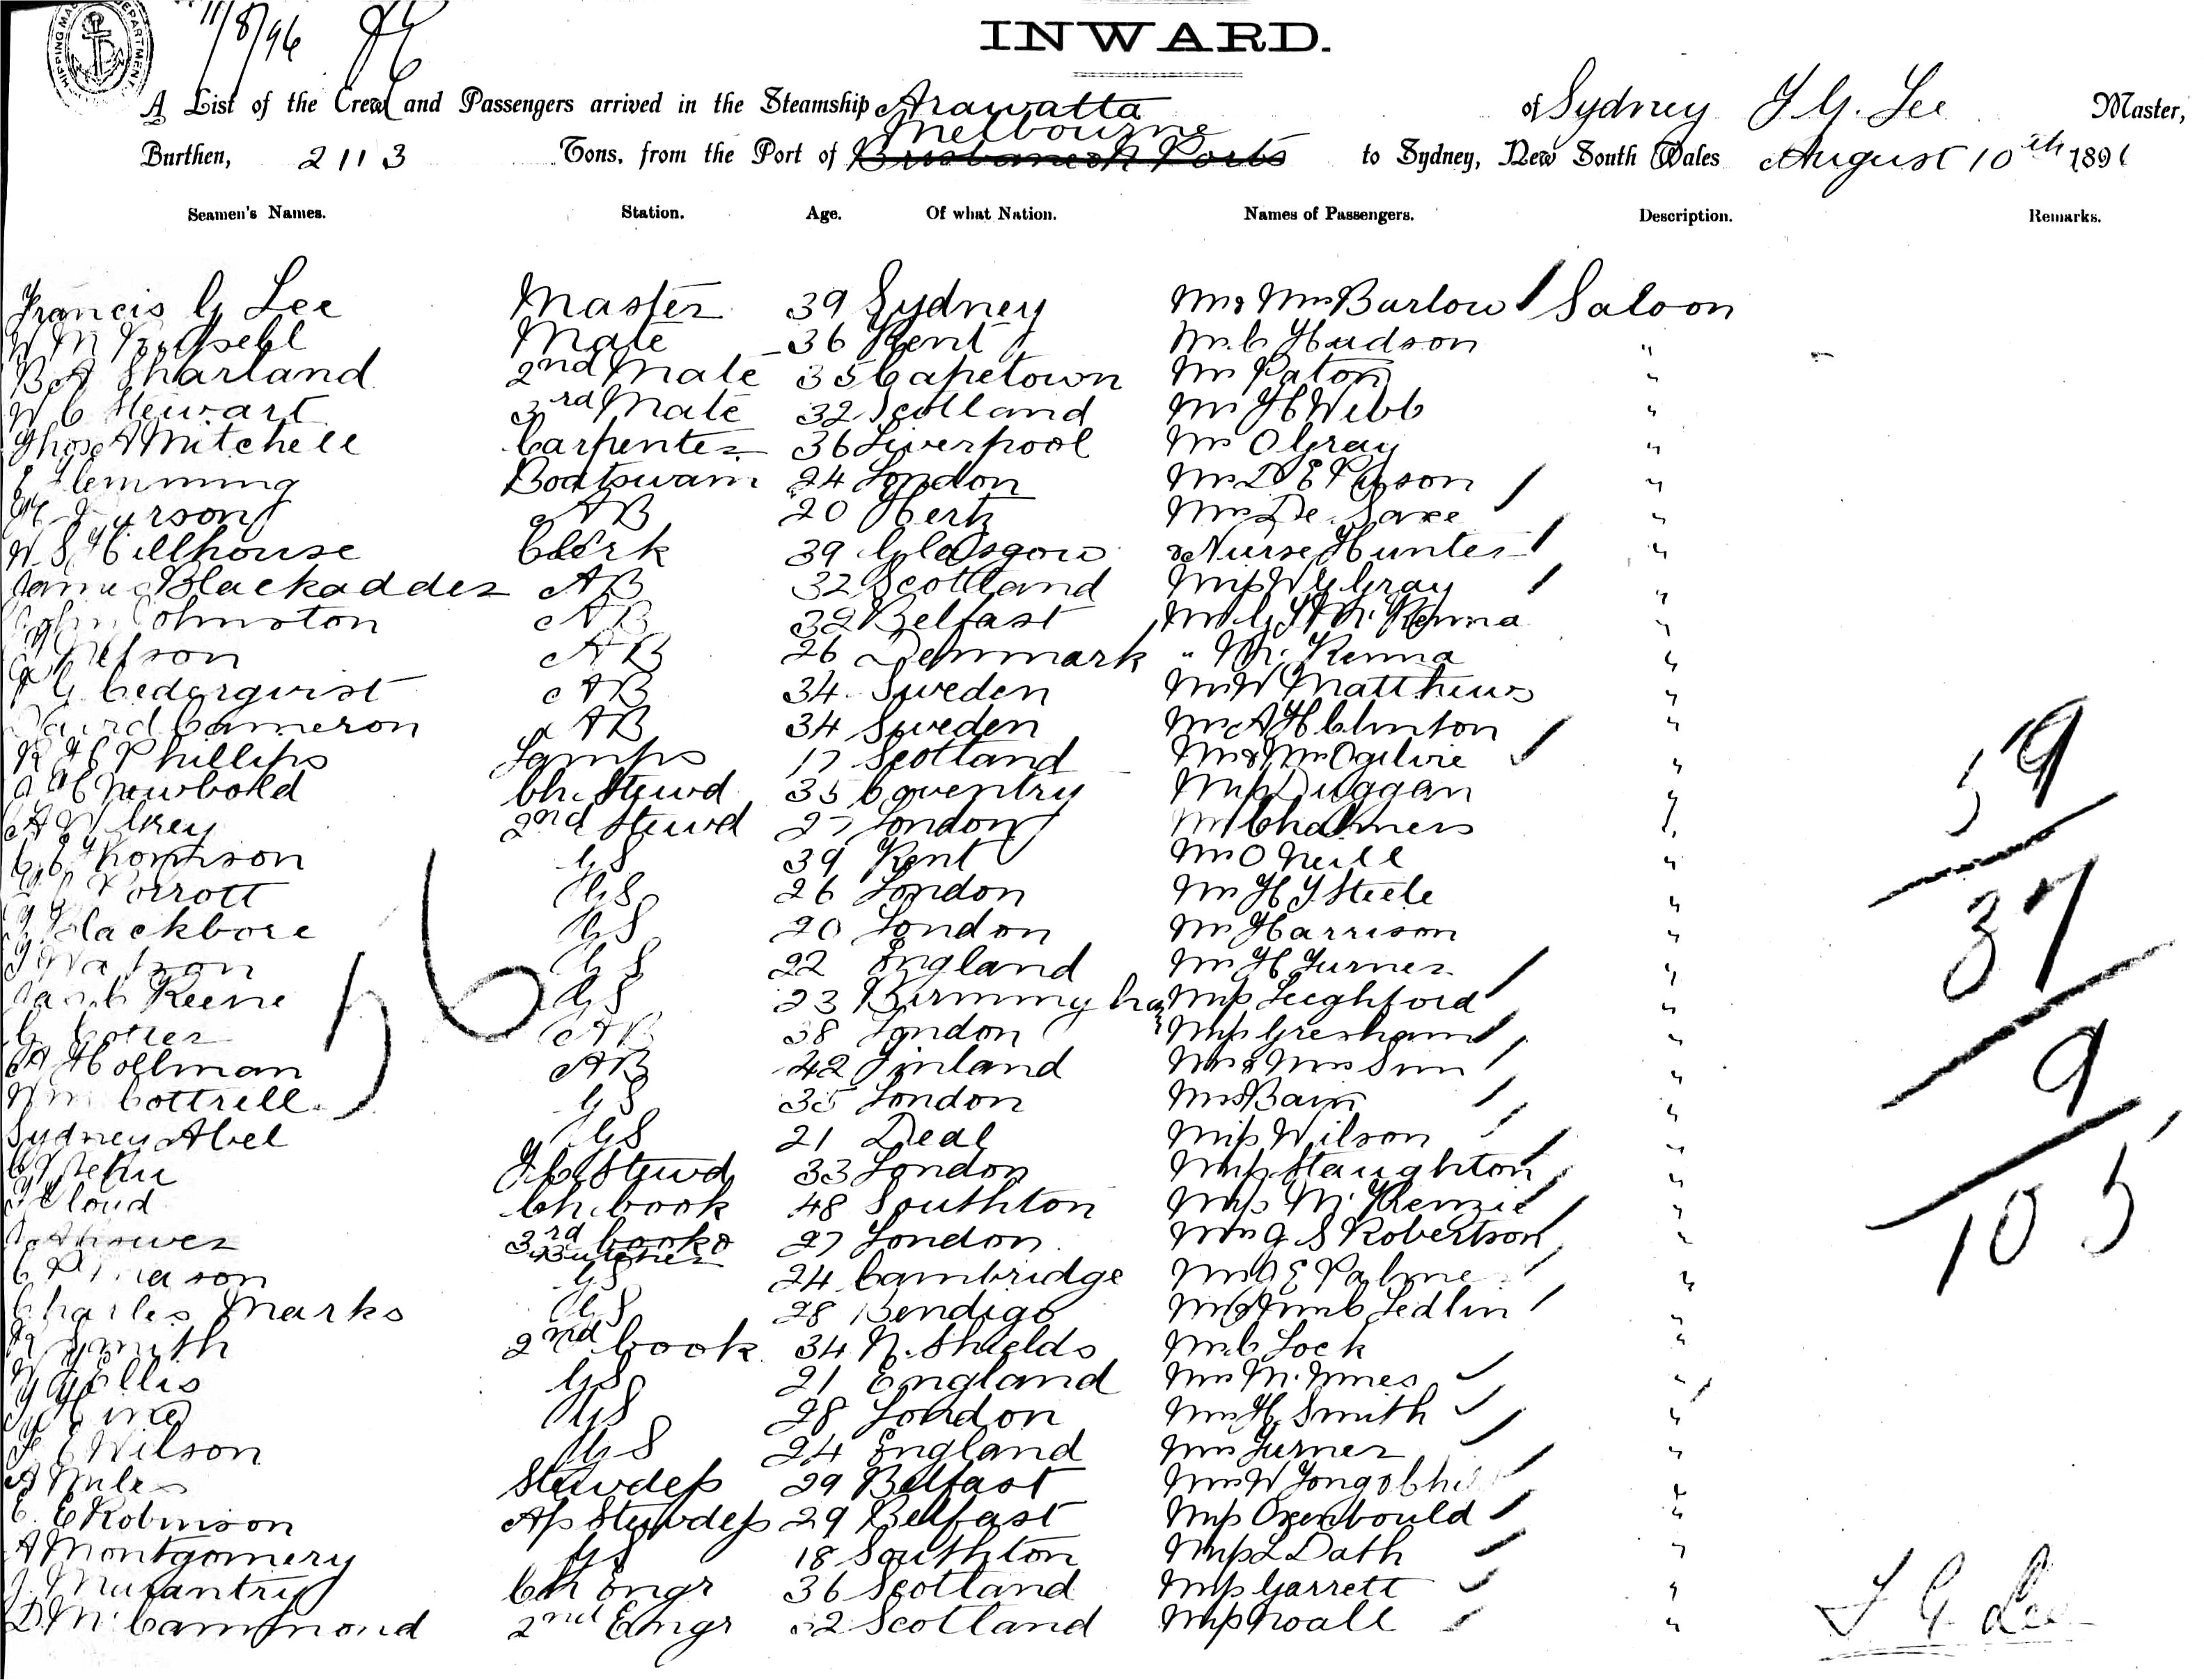 11/8/96
INWARD.
A List of the Crew and Passengers arrived in the Steamship Arawatta of Sydney F G. Lee Master,
Melbourne
Burthen, 2113 Tons, from the Port of Brisbane & Ports to Sydney, New South Wales August 10th 1896
Seamen's Names. Station. Age. Of what Nation. Names of Passengers. Description. Remarks.
Francis G Lee Master 39 Sydney Mr & Mrs Barlow Saloon
W M Mate 36 Kent Mr C Hudson "
B A Sharland 2nd Mate 35 Capetown Mr Paton "
W C Stewart 3rd Mate 32 Scotland Mr H Webb "
Thos A Mitchell Carpenter 36 Liverpool Mr O Gray "
Flemming Boatswain 24 London Mrs D E "
AB 20 Hertz Mrs De Saxe "
W. S. Hillhouse Clerk 39 Glasgow & Nurse Hunter "
James Blackadder AB 32 Scotland Miss W G Gray "
John Johnston AB 32 Belfast Mr G Mc Kenna "
Nelson AB 26 Denmark " Mc Kenna "
G Cederqvist AB 34 Sweden Mr W Matthews "
David Cameron AB 34 Sweden Mr A H Clinton "
R H Phillips Lamps 17 Scotland Mr & Mrs Ogilvie "
Newbold Ch. Stewd 35 Coventry Miss Duggan "
A W Grey 2nd Stewd 27 London Mr Chalmers "
Thompson GS 39 Kent Mr O Neill "
Porrott GS 26 London Mr H J Steele "
Blackbore GS 20 London Mr Harrison "
Watson GS 22 England Mr H Turner "
Keene GS 23 Birmingham Miss Leighford "
G Cotter AB 38 London Miss Gresham "
A Hollman AB 42 Finland Mr & Mrs Sim "
Wm Cottrell GS 35 London Mrs Bain "
56
Sydney Abel GS 21 Deal Miss Wilson "
F.C. Stewd 33 London Miss Staughton "
Cloud Ch. Cook 48 Southton Miss McKenzie "
3rd Cook & 27 London Mrs J S Robertson "
Butcher
GS 24 Cambridge Mrs A E Palmer "
Charles Marks GS 28 Bendigo Ledlin "
R Smith 2nd Cook 34 N. Shields Mr C Lock "
Ellis GS 21 England Mrs McInnes "
GS 28 London Mrs H Smith "
F E Wilson GS 24 England Mrs Turner "
A Stewdess 29 Belfast Mrs W "
E. E Robinson As Stewdess 29 Belfast Miss Oxenbould "
A Montgomery GS 18 Southton Miss L Dath "
Ch Engr 36 Scotland Miss Garrett "
D Mc Cammond 2nd Engr 32 Scotland Miss Noall "
59
37
9
105
F G Lee